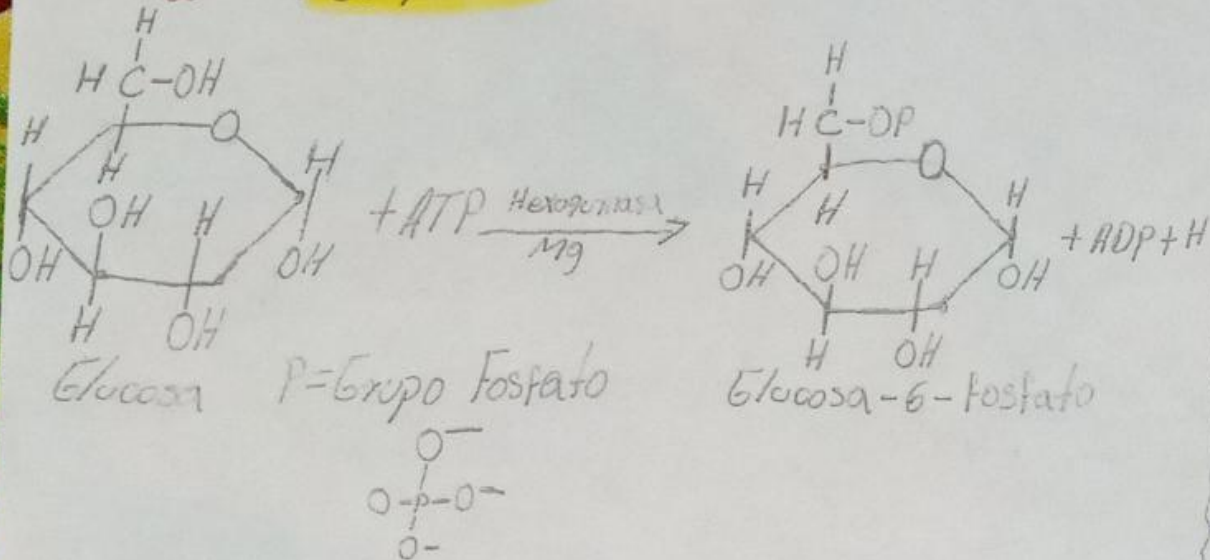 H
H C-OH
H
O
H
H
OH
H
OH
OH
H
OH
+ATP
Mg
H
H C-OP
H
O
H
H
OH
OH
H
OH
H
OH
+ADP+H
Glucosa
P=Grupo Fosfato
Glucosa-6-fosfato
O-
O-P-O-
O-